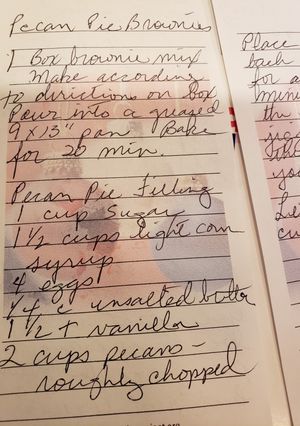 Pecan Pie Brownies
1 Box brownie mix
Make according
to directions on box
Pour into a greased
9 x 13" pan. Bake
for 20 min.
Pecan Pie Filling
1 cup Sugar
1 1/2 cups light corn
syrup
4 eggs
1/4 c unsalted butter
1 1/2 t vanilla
2 cups pecans -
roughly chopped
Place
back
for a
minu
the
you
cu